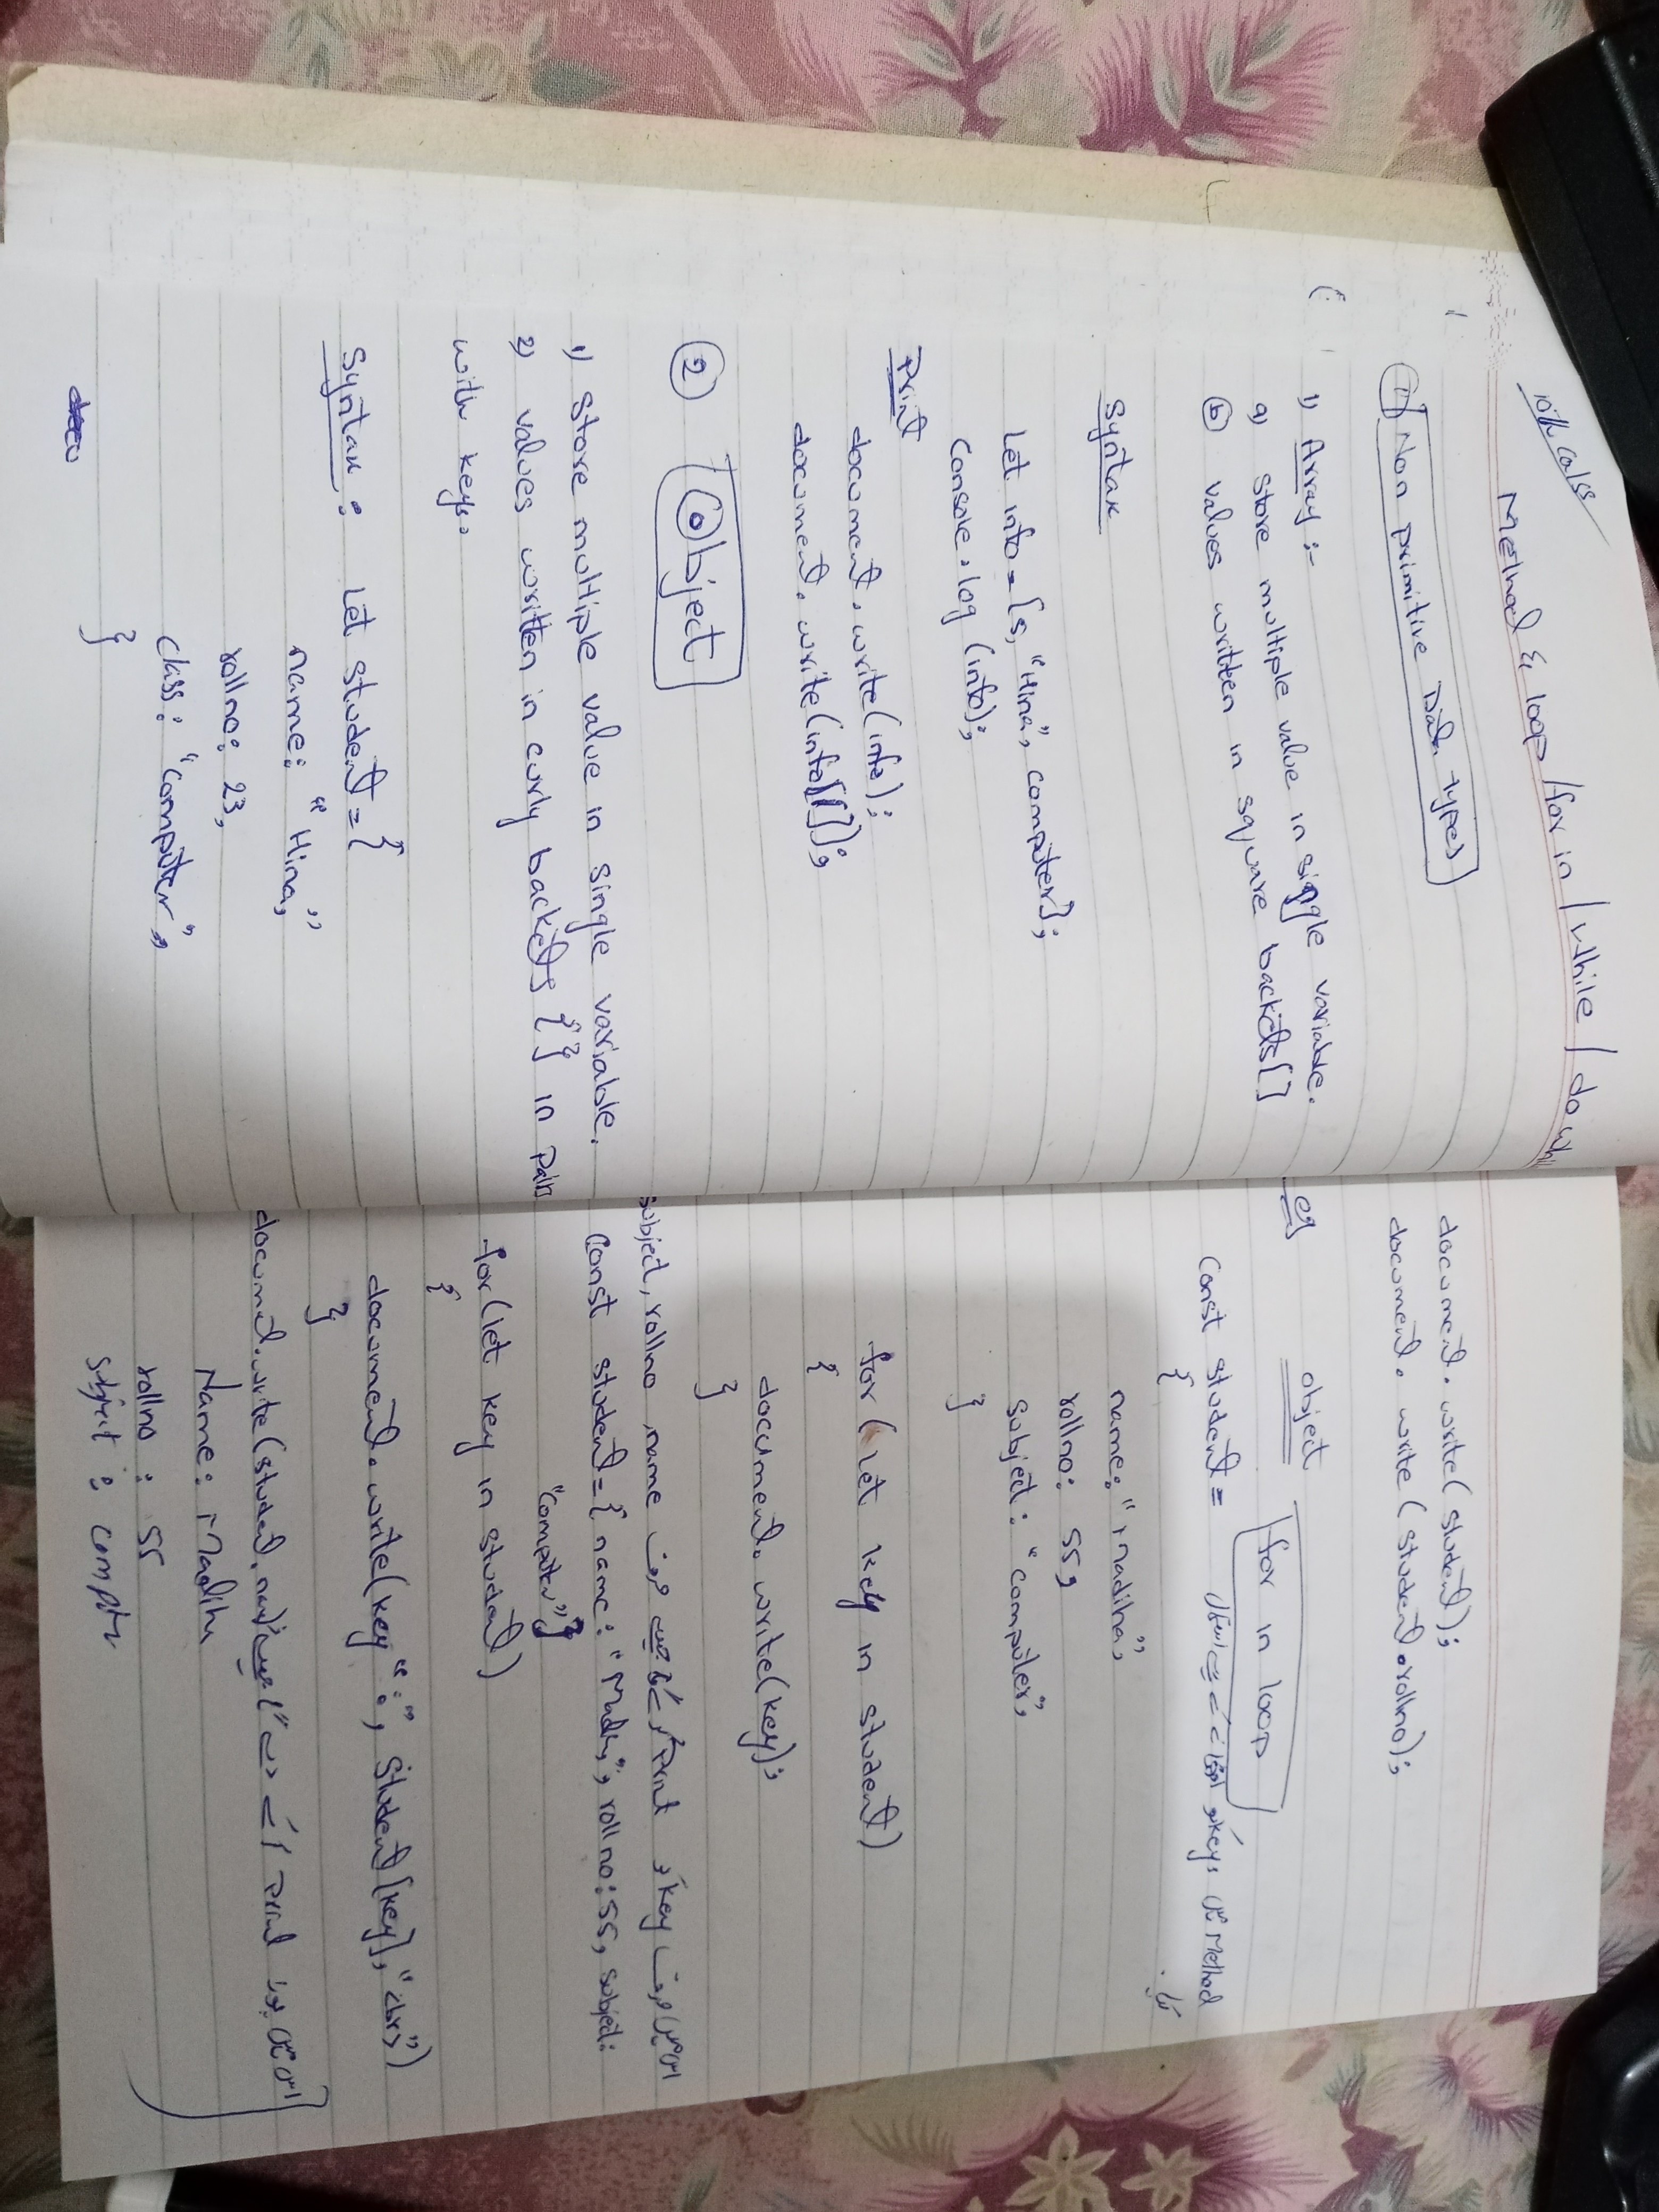 10th Calss
Method & loop / for in / while / do whi
1) Non primitive Data types
1) Array :-
a) Store multiple value in siggle variable.
b) values written in square backets []
Syntax
Let info = [5, "Hina", computer];
Console.log (info);
Print
document.write(info);
document.write(info[1]);
2) Object
1) Store multiple value in single variable.
2) values written in curly backets { } in pairs
with keys.
Syntax : Let student = {
name: "Hina,"
rollno: 23,
class: "computer",
}
document.write(student);
document.write(student.rollno);
eg object for in loop
Const student =
{
name: "Madiha",
rollno: 55,
subject: "computer",
}
for (let key in student)
{
document.write(key);
}
subject, rollno, name صرف print key صرف اس میں
Const student = { name: "Madiha", rollno: 55, subject:
"computer"}
for (let key in student)
{
document.write(key ":", student[key], "<br>")
}
document.write(student.name) print پورا اس میں
Name: Madiha
rollno : 55
subject : computer